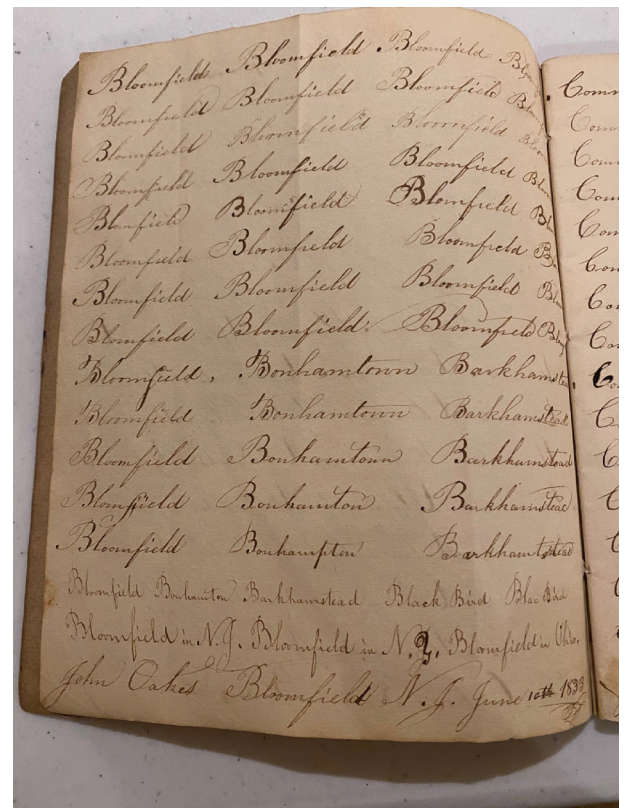 Bloomfield Bloomfield Bloomfield
Bloomfield Bloomfield Bloomfield
Bloomfield Bloomfield Bloomfield
Bloomfield Bloomfield Bloomfield
Blomfield Bloomfield Blomfield
Bloomfield Bloomfield Bloomfield
Bloomfield Bloomfield Bloomfield
Bloomfield Bloomfield Bloomfield
Bloomfield, Bonhamtown Barkhamstead
Bloomfield Bonhamtown Barkhamstead
Bloomfield Bonhamtown Barkhamstead
Blomfield Bonhamton Barkhamstead
Bloomfield Bonhampton Barkhamstead
Bloomfield Bonhamton Barkhamstead Black Bird Blac Bird
Bloomfield in N.J. Bloomfield in N.J. Bloomfield in Ohio.
John Oakes Bloomfield N.J. June 10th 1833